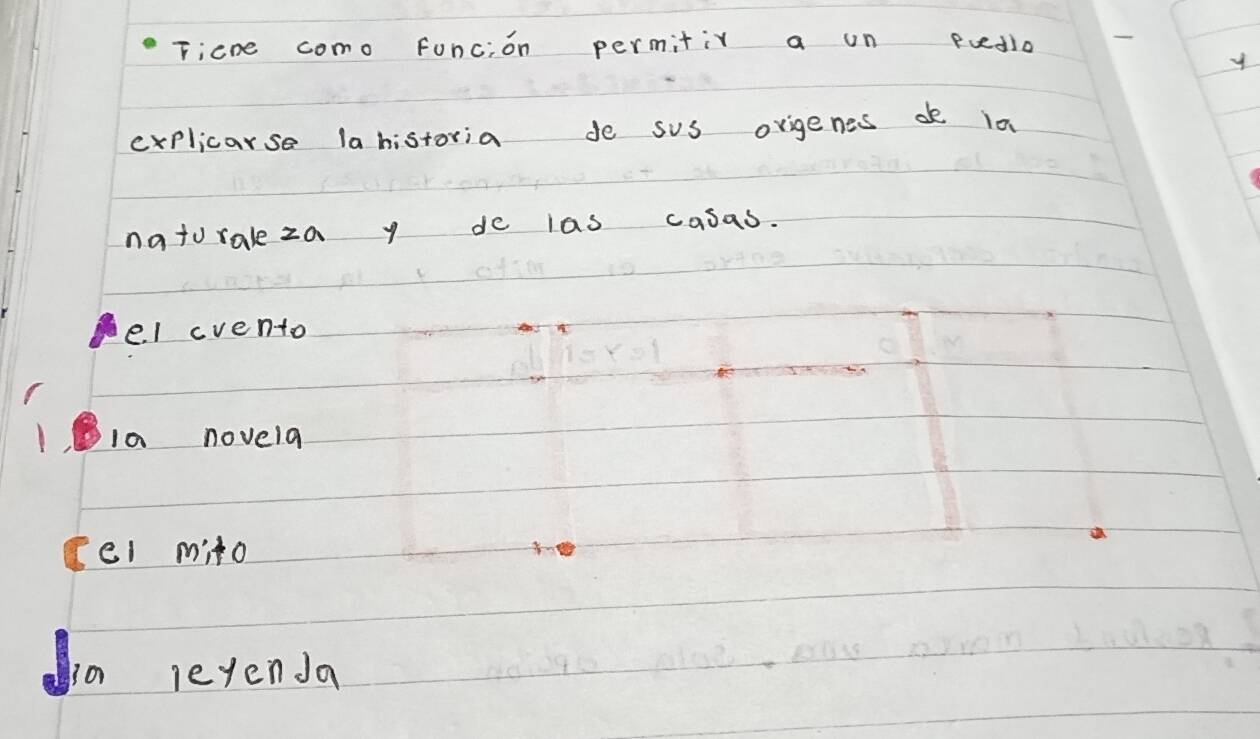 • Tiene como Función permitir a un Puedlo
explicarse la historia de sus origenes de la
naturaleza y de las casas.
A el cuento
B la novela
C el mito
d la leyenda